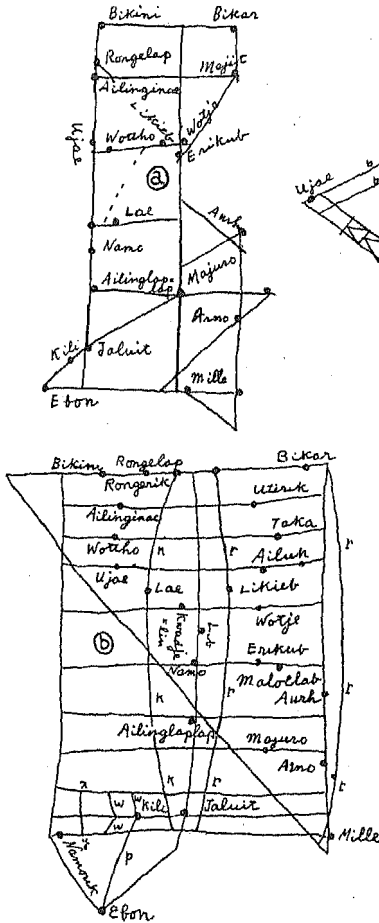 Bikini Bikar
Rongelap
Mejit
Ailinginae
Likiek
Wotje
Ujae
Wottho
Erikub
ⓐ
Lae
Aurh
Namo
Ailinglap-
lap
Majuro
Arno
Kili Jaluit
Mille
Ebon
Ujae
b
b
Bikini Rongelap Bikar
Rongerik
Utirik
Ailinginae
Taka
Wottho
k r r
Ailuk
Ujae
Lae Likieb
Kwadje
=lin
Lib
Wotje
ⓑ
Erikub
Namo
Maloelab
Aurh
k r r
Ailinglaplap
Majuro
Arno
k r r
w w Kili Jaluit
w
Mille
Namorik
p
Ebon